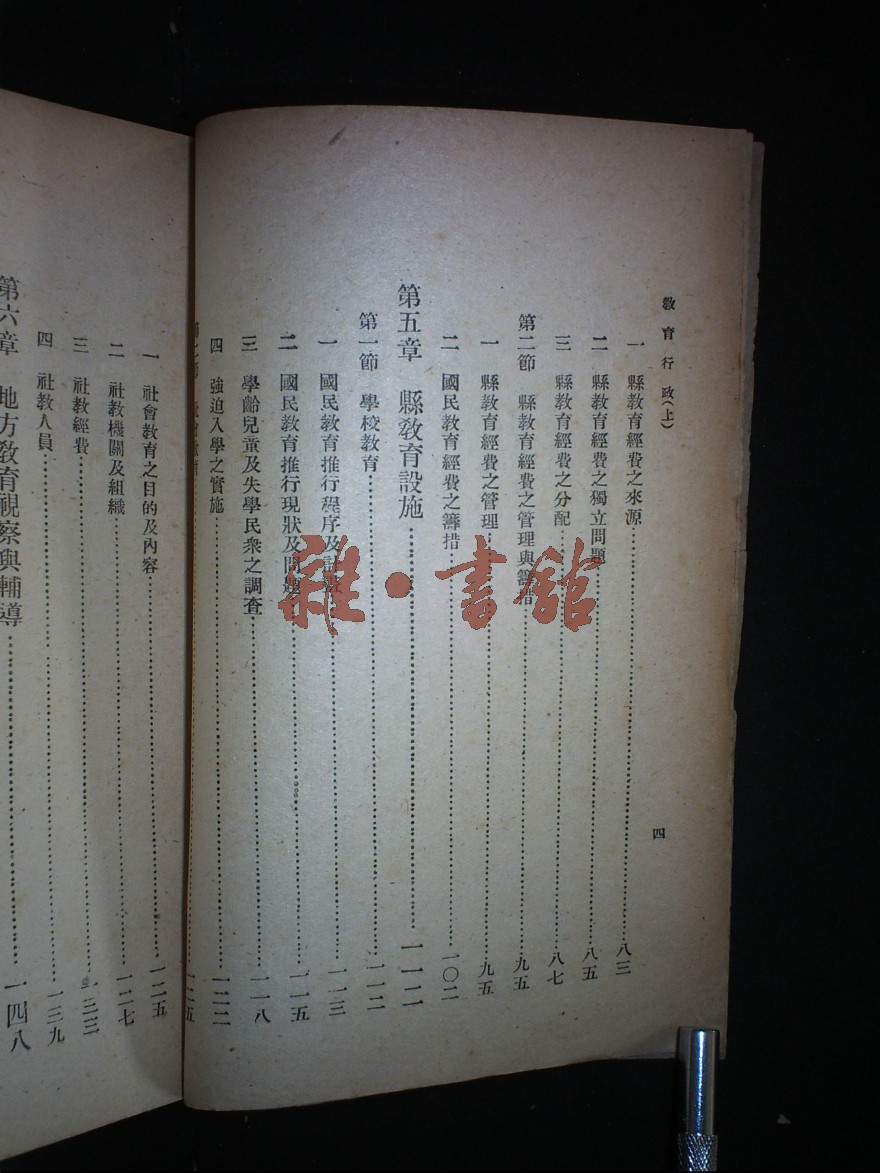 教育行政(上)
四
一 縣教育經費之來源……八三
二 縣教育經費之獨立問題……八五
三 縣教育經費之分配……八七
第二節 縣教育經費之管理與籌措……九五
一 縣教育經費之管理……九五
二 國民教育經費之籌措……一〇二
第五章 縣教育設施……一一二
第一節 學校教育……一一二
一 國民教育推行程序及計……一一三
二 國民教育推行現狀及問題……一一五
三 學齡兒童及失學民衆之調查……一一八
四 強迫入學之實施……一二二
一 社會教育之目的及內容……一二五
二 社教機關及組織……一二七
三 社教經費……一三三
四 社教人員……一三九
第六章 地方教育視察與輔導……一四八
雜·書館